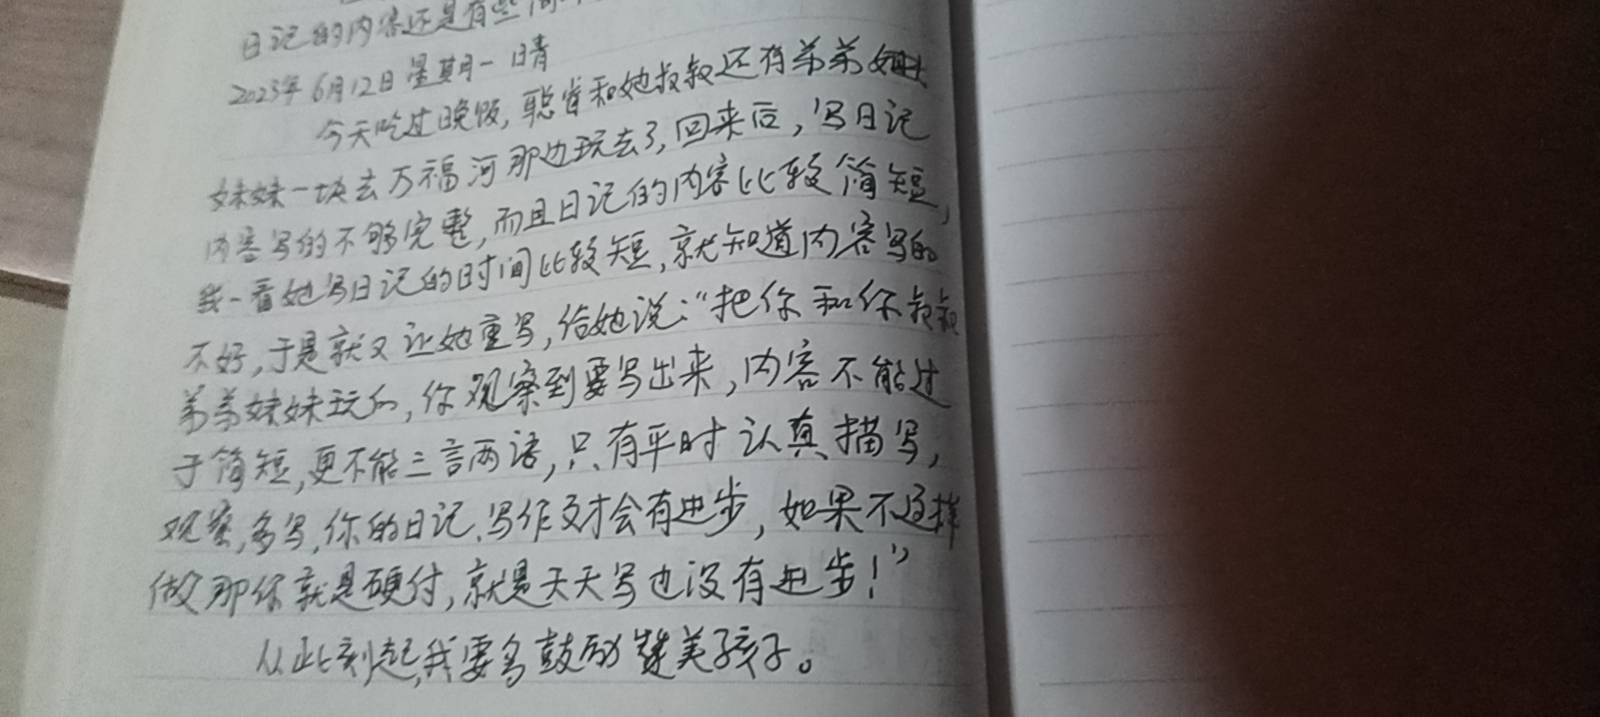 日记的内容还是有些简
2023年6月12日 星期一 晴
今天吃过晚饭,聪睿和她叔叔还有弟弟
妹妹一块去万福河那边玩去了,回来后,写日记
内容写的不够完整,而且日记的内容比较简短,
我一看她写日记的时间比较短,就知道内容写的
不好,于是就又让她重写,给她说:“把你和你叔叔
弟弟妹妹玩的,你观察到要写出来,内容不能过
于简短,更不能三言两语,只有平时认真描写,
观察,多写,你的日记.写作文才会有进步,如果不这样
做那你就是硬付,就是天天写也没有进步!”
从此刻起,我要多鼓励赞美孩子。